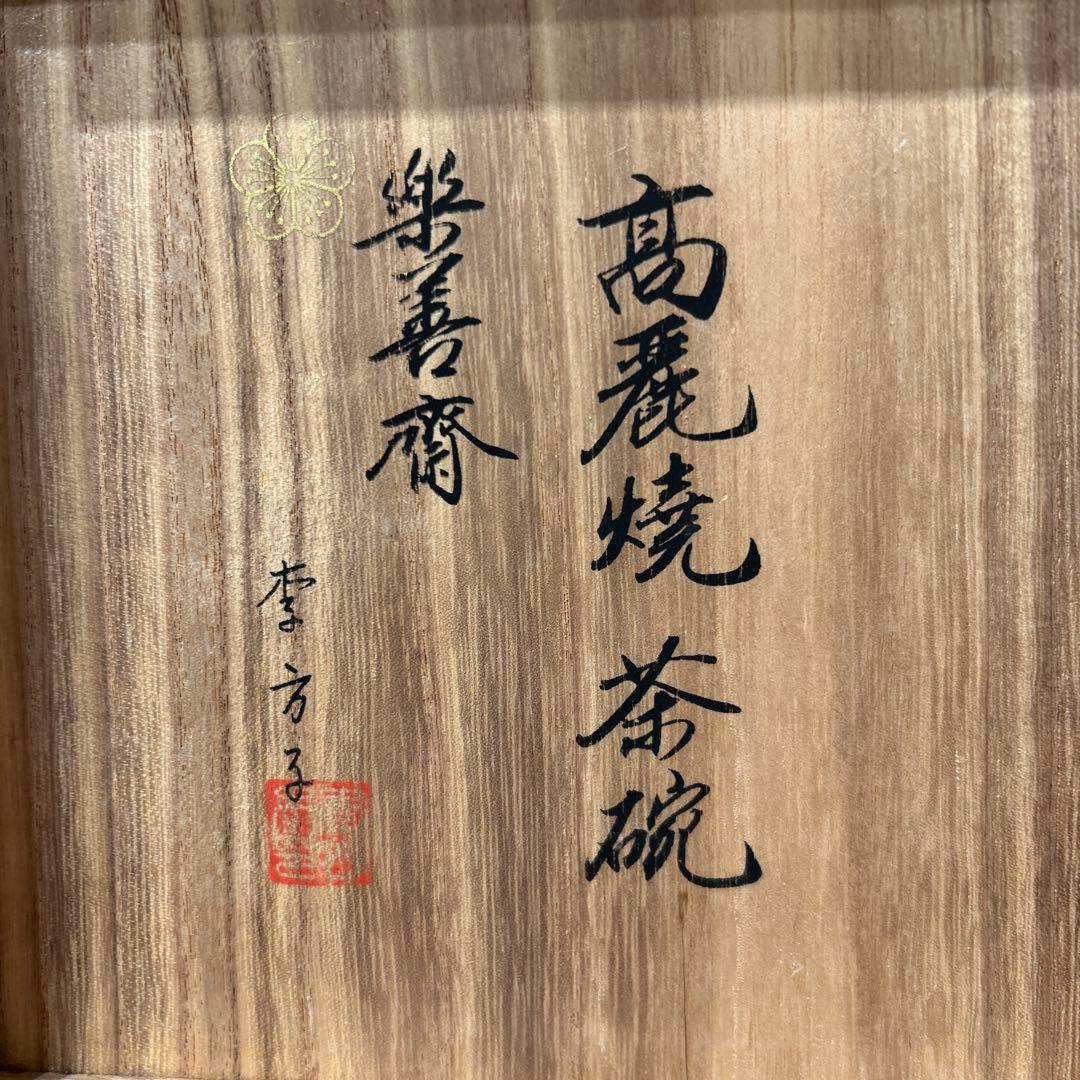 髙麗燒 茶碗
樂善齋
李方子